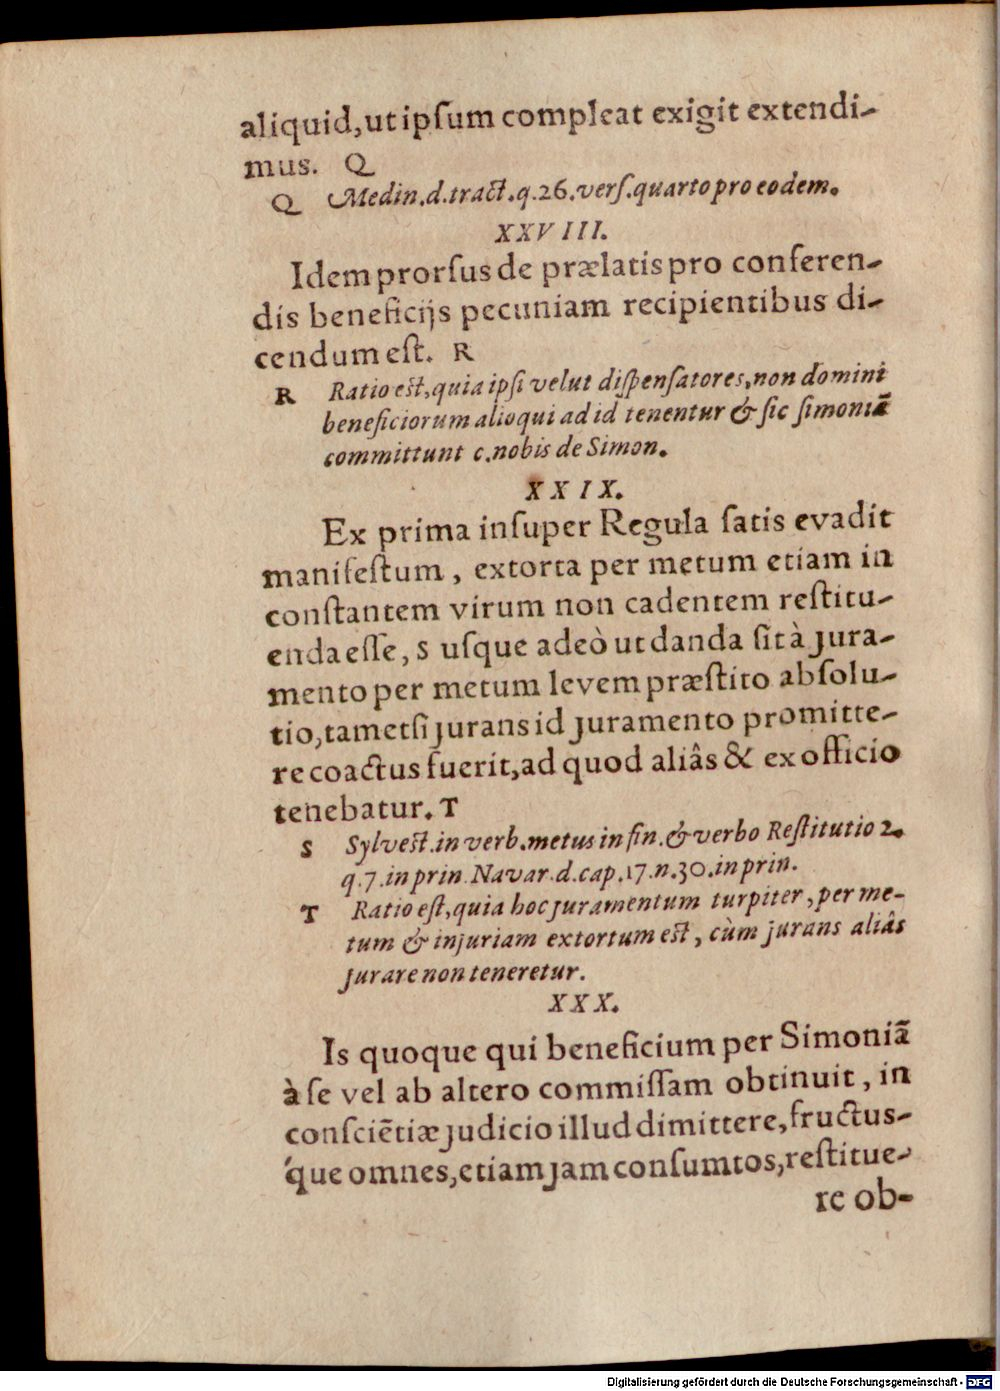 aliquid,ut ipſum compleat exigit extendi-
mus. Q
Q Medin.d.tract.q.26.verſ.quarto pro eodem.
XXVIII.
Idem prorſus de prælatis pro conferen-
dis beneficijs pecuniam recipientibus di-
cendum eſt. R
R Ratio eſt,quia ipſi velut diſpenſatores,non domini
beneficiorum alioqui ad id tenentur & ſic ſimoniã
committunt c.nobis de Simon.
XXIX.
Ex prima inſuper Regula ſatis evadit
manifeſtum, extorta per metum etiam in
conſtantem virum non cadentem reſtitu-
enda eſſe, S uſque adeò ut danda ſit à jura-
mento per metum levem præſtito abſolu-
tio,tametſi jurans id juramento promitte-
re coactus fuerit,ad quod aliâs & ex officio
tenebatur. T
S Sylveſt.in verb.metus in fin.& verbo Reſtitutio 2.
q.7.in prin. Navar.d.cap.17.n.30.in prin.
T Ratio eſt,quia hoc juramentum turpiter,per me-
tum & injuriam extortum eſt, cùm jurans aliâs
jurare non teneretur.
XXX.
Is quoque qui beneficium per Simoniã
à ſe vel ab altero commiſſam obtinuit, in
conſciẽtiæ judicio illud dimittere,fructus-
que omnes,etiam jam conſumtos,reſtitue-
re ob-
Digitalisierung gefördert durch die Deutsche Forschungsgemeinschaft - DFG